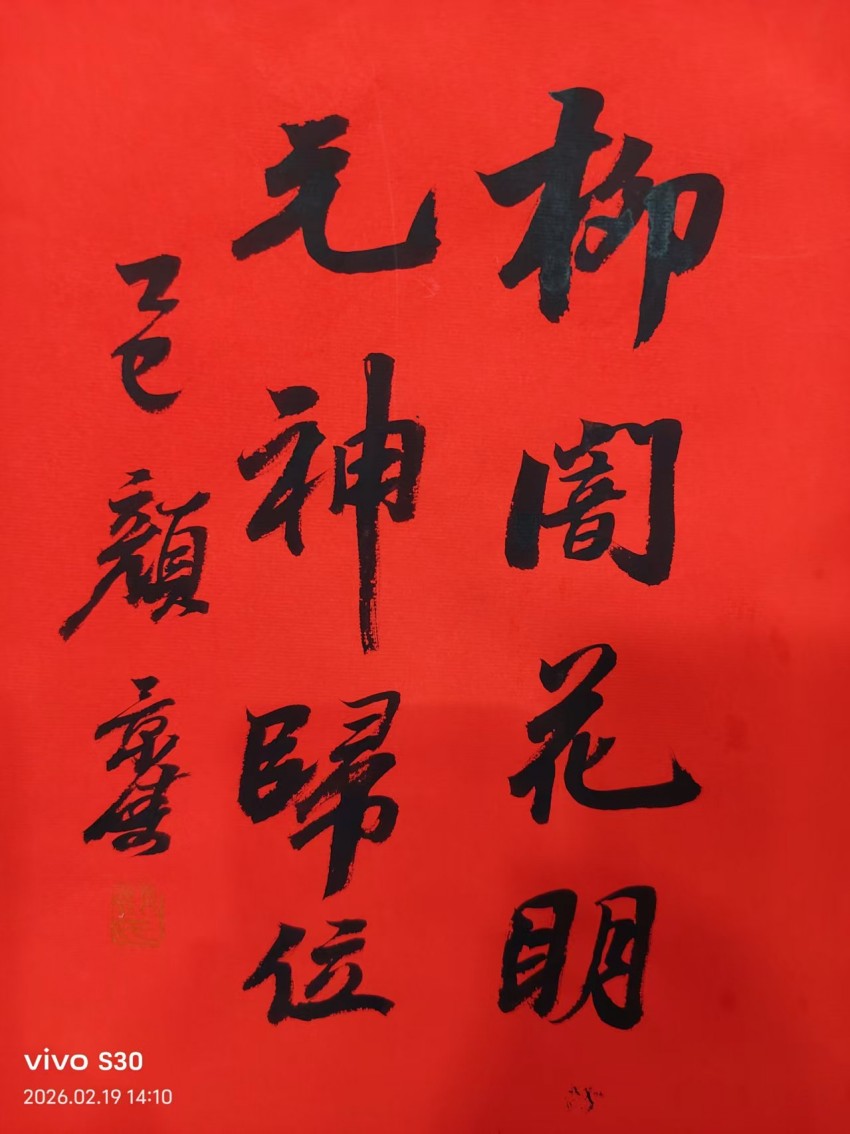 柳闇花明
元神歸位
乙巳 顏京
vivo S30
2026.02.19 14:10